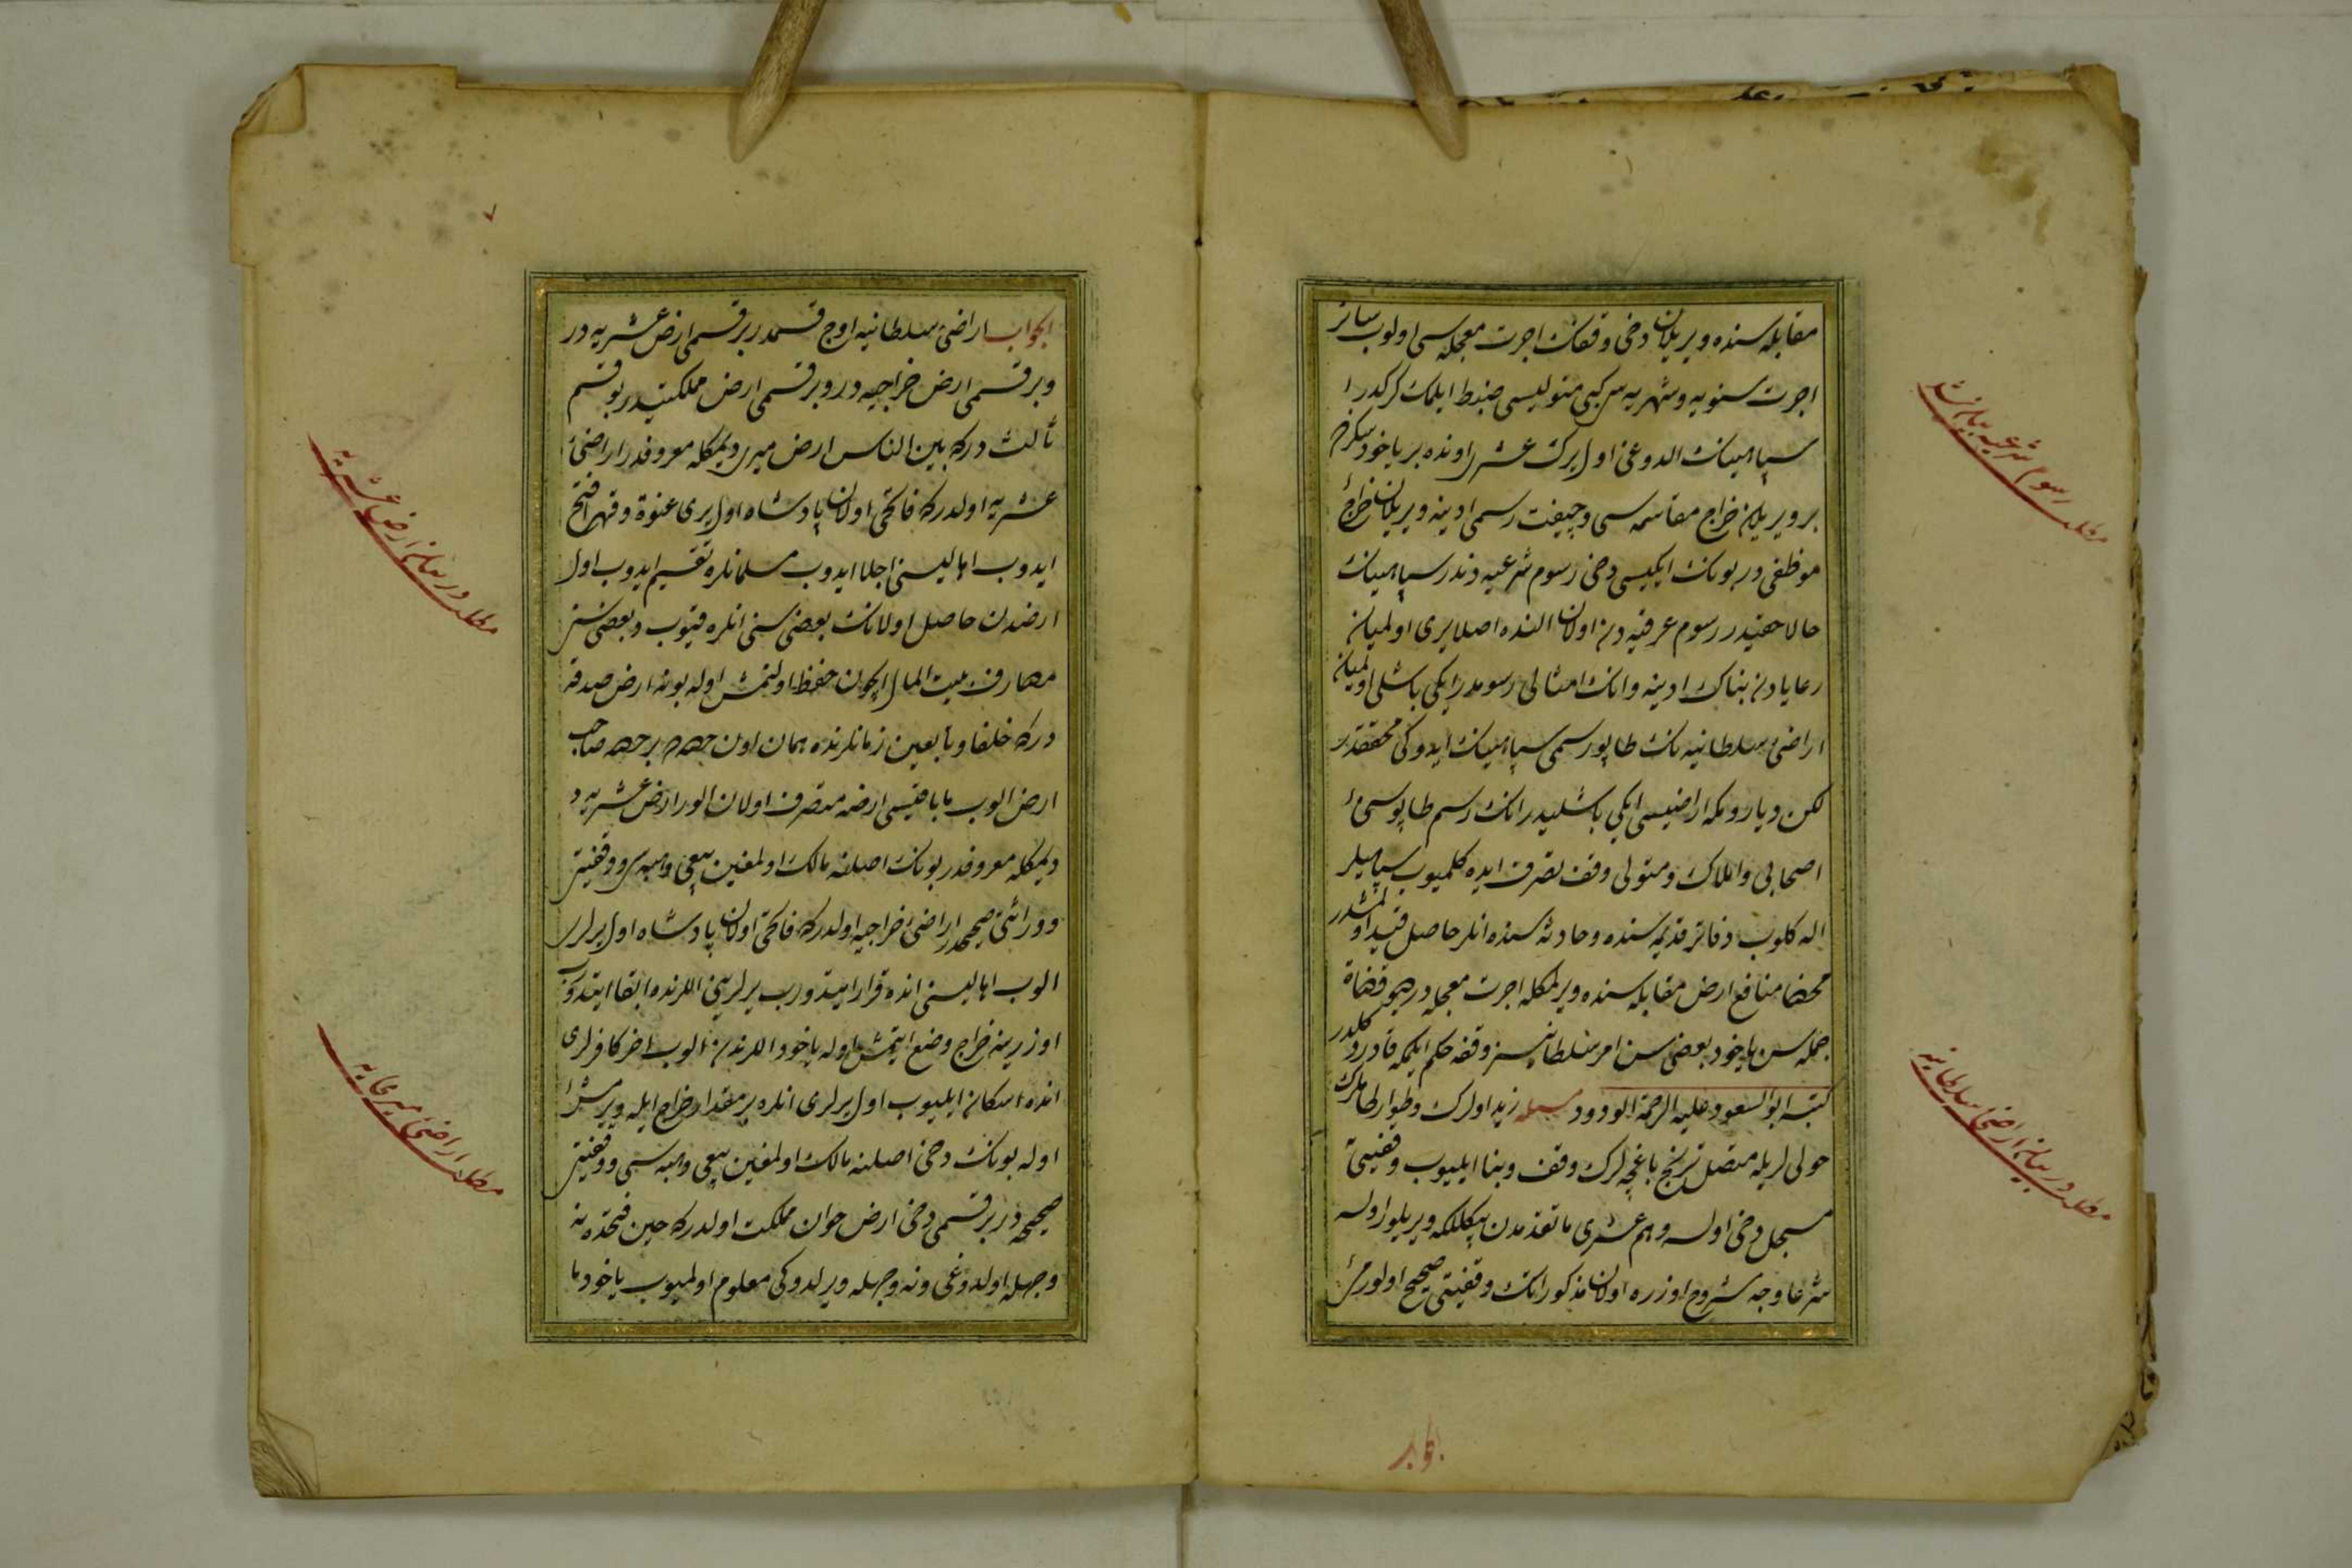 مقابله سنده ویریلان دخی وقفك اجرت معجله سی اولوب سائر
اجرت سنویه و شهریه سی كبی متولیسی ضبط ایلمك كركدر
سپاهینك الدوغی اول یرك عشر اوندە بر یاخود سكزده
بر ویریلان خراج مقاسمه سی و چیفت رسمی ادینه ویریلان خراج
موظفی در بونك ایكیسی دخی رسوم شرعیه دندر سپاهینك
حالا حقیدر رسوم عرفیه دن اولان النده اصلا یری اولمیان
رعایادن بناك ادینه و انك امثالی رسومدر ایكی باشلی اولمیان
اراضئ سلطانیه نك طاپو رسمی سپاهینك ایدوكی محققدر
لكن دیار رومكه اراضیسی ایكی باشلیدر انك رسم طاپوسی
اصحابی و املاك و متولی وقف تصرف ایده كلمیوب سپاهیلر
اله كلوب دفاتر قدیمه سنده و حادثه سنده انلر حاصل قید اولنمشدر
محضا منافع ارض مقابله سنده ویرلمكله اجرت معجله در جمیع قضاة
جمله سن یاخود بعضی سن امر سلطانیسز وقفه حكم ایتمكه قادر دكلدر
كتبه ابو السعود علیه الرحمة الودود مسئله زید اولرك و طوارلر
حولی لریله متصل ترنج باغچه لرك وقف و بنا ایلیوب وقفیتی
مسجل دخی اولسه و هم عشری ما تقدمدن بیكلكه ویریلور اولسه
شرعا وجه مشروح اوزره اولان مذكورانك وقفیتی صحیح اولورمی
الجواب
مطلب رسوم شرعیه بیاننده
مطلب در بیان اراضئ سلطانیه
الجواب اراضئ سلطانیه اوچ قسمدر بر قسمی ارض عشریه در
و بر قسمی ارض خراجیه در و بر قسمی ارض مملكتیدر بو قسم
ثالث دركه بین الناس ارض میری دیمكله معروفدر اراضئ
عشریه اولدركه فاتحی اولان پادشاه اول یری عنوة و قهرا فتح
ایدوب اهالیسنی اجلا ایدوب مسلمانلره تقسیم ایدوب اول
ارضدن حاصل اولانك بعضی سنی انلره قیوب و بعضی سن
مصارف بیت المال ایچون حفظ اولنمش اوله بونه ارض صدقه
دركه خلفا و تابعین زمانلرنده همان اون حصه ده بر حصه صاحب
ارض الوب باقیسی ارضه متصرف اولان الور ارض عشریه
دیمكله معروفدر بونك اصلنه مالك اولمغین بیعی و هبه سی و وقفیتی
و وراثتی صحیحدر اراضئ خراجیه اولدركه فاتحی اولان پادشاه اول یرلری
الوب اهالیسنی انده قرار ایتدورب یرلرینی اللرنده ابقا ایتدورب
اوزرینه خراج وضع ایتمش اوله یاخود اللرندن الوب اخر كافرلری
انده اسكان ایلیوب اول یرلری انلره بر مقدار خراج ایله ویرمش
اوله بونك دخی اصلنه مالك اولمغین بیعی و هبه سی و وقفیتی
صحیحه در بر قسمی دخی ارض حوان مملكت اولدركه حین فتحده نه
وجهله اولدوغی و نه وجهله ویرلدوكی معلوم اولمیوب یاخود
مطلب در بیان ارض عشریه
مطلب اراضئ میریه
٧